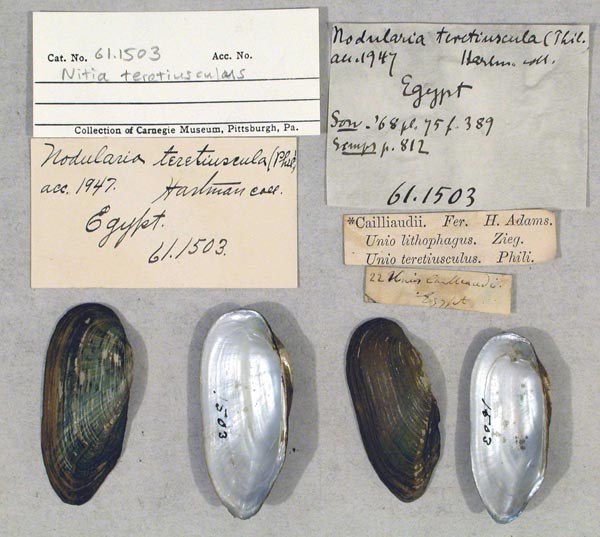 Cat. No. 61.1503 Acc. No.
Nitia teretiusculus
Collection of Carnegie Museum, Pittsburgh, Pa.
Nodularia teretiuscula (Phil.
acc. 1947 Hartm. coll.
Egypt
Sow. '68 pl. 75 f. 389
Simps p. 812
61.1503
Nodularia teretiuscula (Phil)
acc. 1947. Hartman coll.
Egypt.
61.1503.
*Cailliaudii. Fer. H. Adams.
Unio lithophagus. Zieg.
Unio teretiusculus. Phili.
22 Unio Cailleaudi.
Egypt
1503
1503